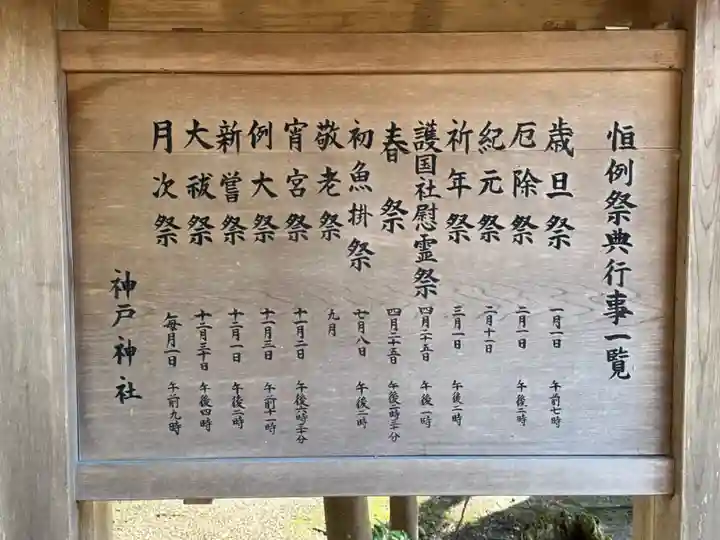 恒例祭典行事一覧
歳旦祭 一月一日 午前七時
厄除祭 二月一日 午後二時
紀元祭 二月十一日
祈年祭 三月一日 午後二時
護国社慰霊祭 四月二十五日 午後一時
春祭 四月二十五日 午後二時三十分
初魚掛祭 七月八日 午後二時
敬老祭 九月
宵宮祭 十一月二日 午後六時三十分
例大祭 十一月三日 午前十一時
新嘗祭 十二月一日 午後二時
大祓祭 十二月三十日 午後四時
月次祭 毎月一日 午前九時
神戸神社